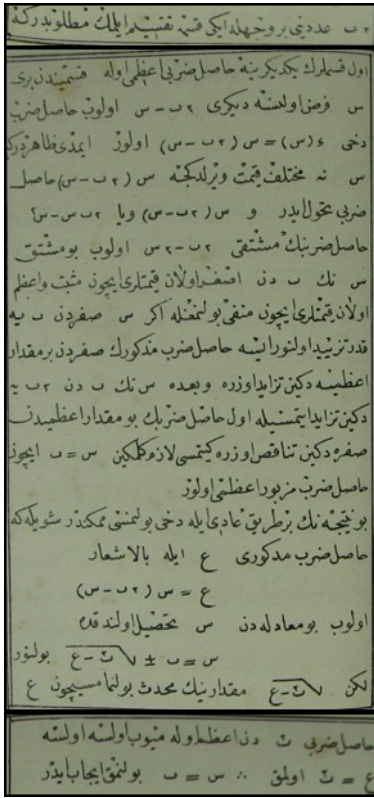 ٢ب عددینی بر وجهله ایکی قسمه تقسیم ایلمك مطلوبدركه
اول قسملرك یكدیكرینه حاصل ضربی اعظمی اوله قسمیندن بری
س فرض اولنسه دیكری ٢ب-س اولوب حاصل ضرب
دخی د(س) = س(٢ب-س) اولور ایمدی ظاهردركه
س نه مختلف قیمت ویرلدكجه س(٢ب-س) حاصل
ضربی تحول ایدر و س(٢ب-س) ویا ٢ب س-س٢
حاصل ضربنك مشتقی ٢ب-٢س اولوب بو مشتق
س نك ب دن اصغر اولان قیمتلری ایچون مثبت واعظم
اولان قیمتلری ایچون منفی بولنمغله اكر س صفردن ب یه
قدر تزیید اولنور ایسه حاصل ضرب مذكورك صفردن بر مقدار
اعظمیسنه دكین تزاید اوزره وبعده س نك ب دن ٢ب یه
دكین تزاید ایتمسیله اول حاصل ضربك بو مقدار اعظمیدن
صفره دكین تناقص اوزره كیتمسی لازم كلمكین س = ب ایچون
حاصل ضرب مزبور اعظمی اولور
بو نتیجه نك بر طریق عادی ایله دخی بولنمسی ممكندر شویله كه
حاصل ضرب مذكوری ع ایله بالاشعار
ع = س(٢ب-س)
اولوب بو معادله دن س تحصیل اولندقده
س = ب ± √ب٢-ع بولنور
لكن √ب٢-ع مقدارینك محدث بولنمامسیچون ع
حاصل ضربی ب٢ دن اعظم اوله میوب اولسه اولسه
ع = ب٢ اولمق ∴ س = ب بولنمق ایجاب ایدر